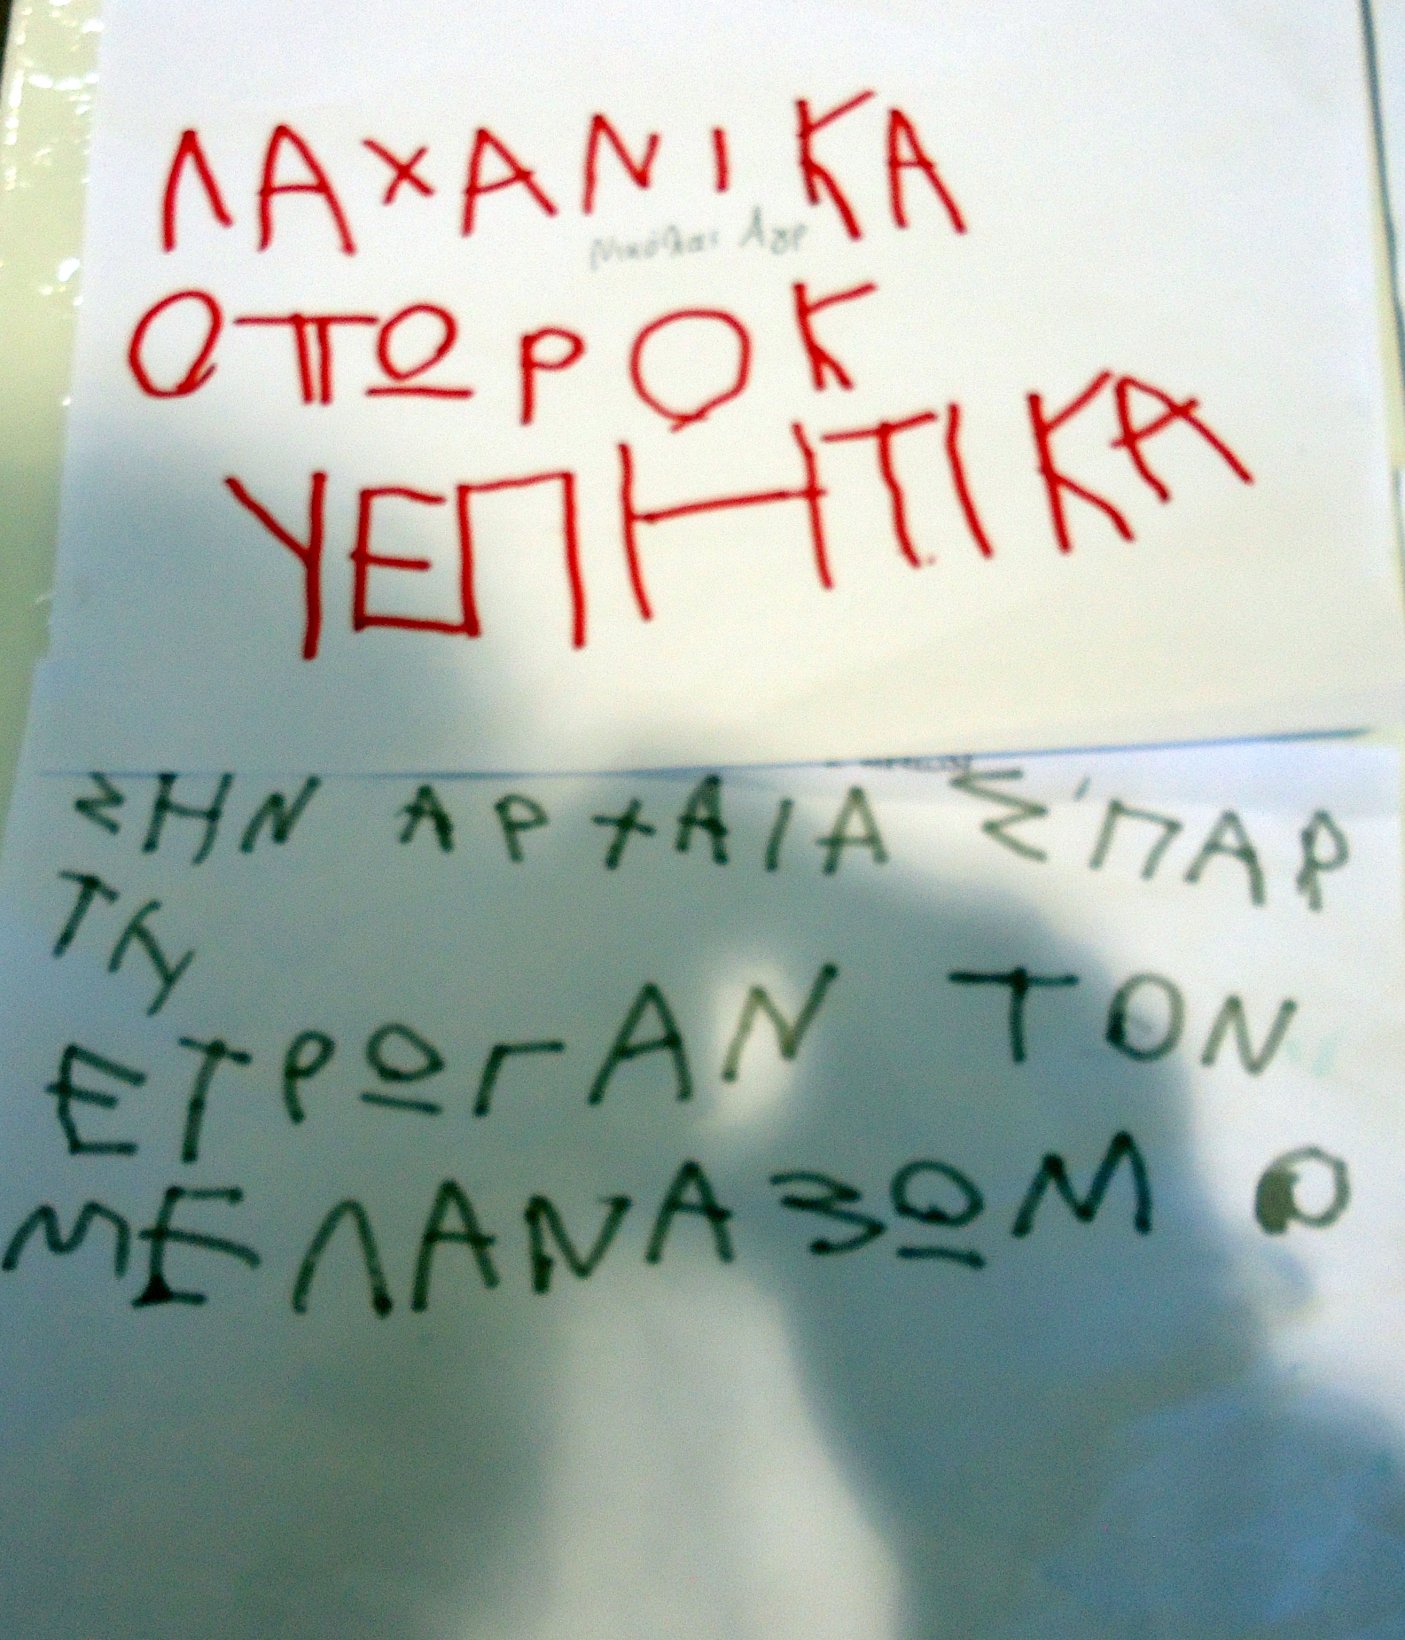 ΛΑΧΑΝΙΚΑ
ΟΠΩΡΟΚ
ΥΕΠΗΤΙΚΑ
ΣΗΝ ΑΡΧΑΙΑ ΣΠΑΡ
ΤΗ
ΕΤΡΩΓΑΝ ΤΟΝ
ΜΕΛΑΝΑ ΖΩΜΟ